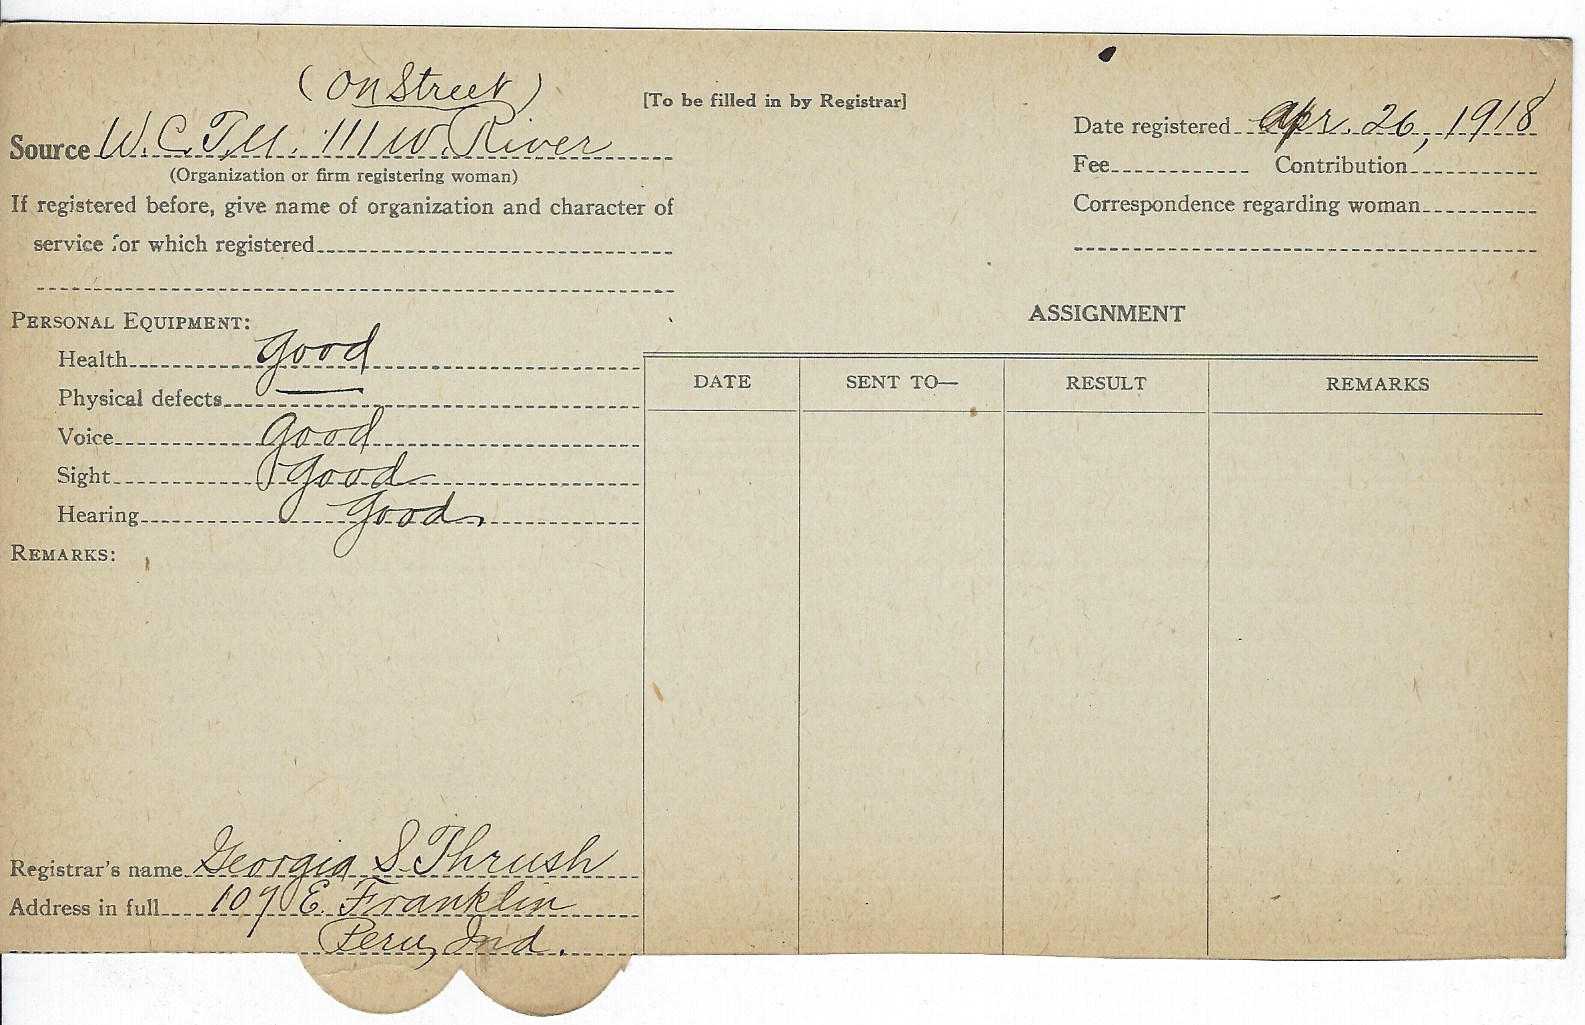 (on Street)
[To be filled in by Registrar]
Source W. C. T. U. 111 W. River
(Organization or firm registering woman)
If registered before, give name of organization and character of
service for which registered
Date registered Apr. 26, 1918
Fee Contribution
Correspondence regarding woman
PERSONAL EQUIPMENT:
Health good
Physical defects —
Voice good
Sight good
Hearing good
REMARKS:
ASSIGNMENT
DATE SENT TO— RESULT REMARKS
Registrar's name Georgia S. Thrush
Address in full 107 E. Franklin
Peru, Ind.